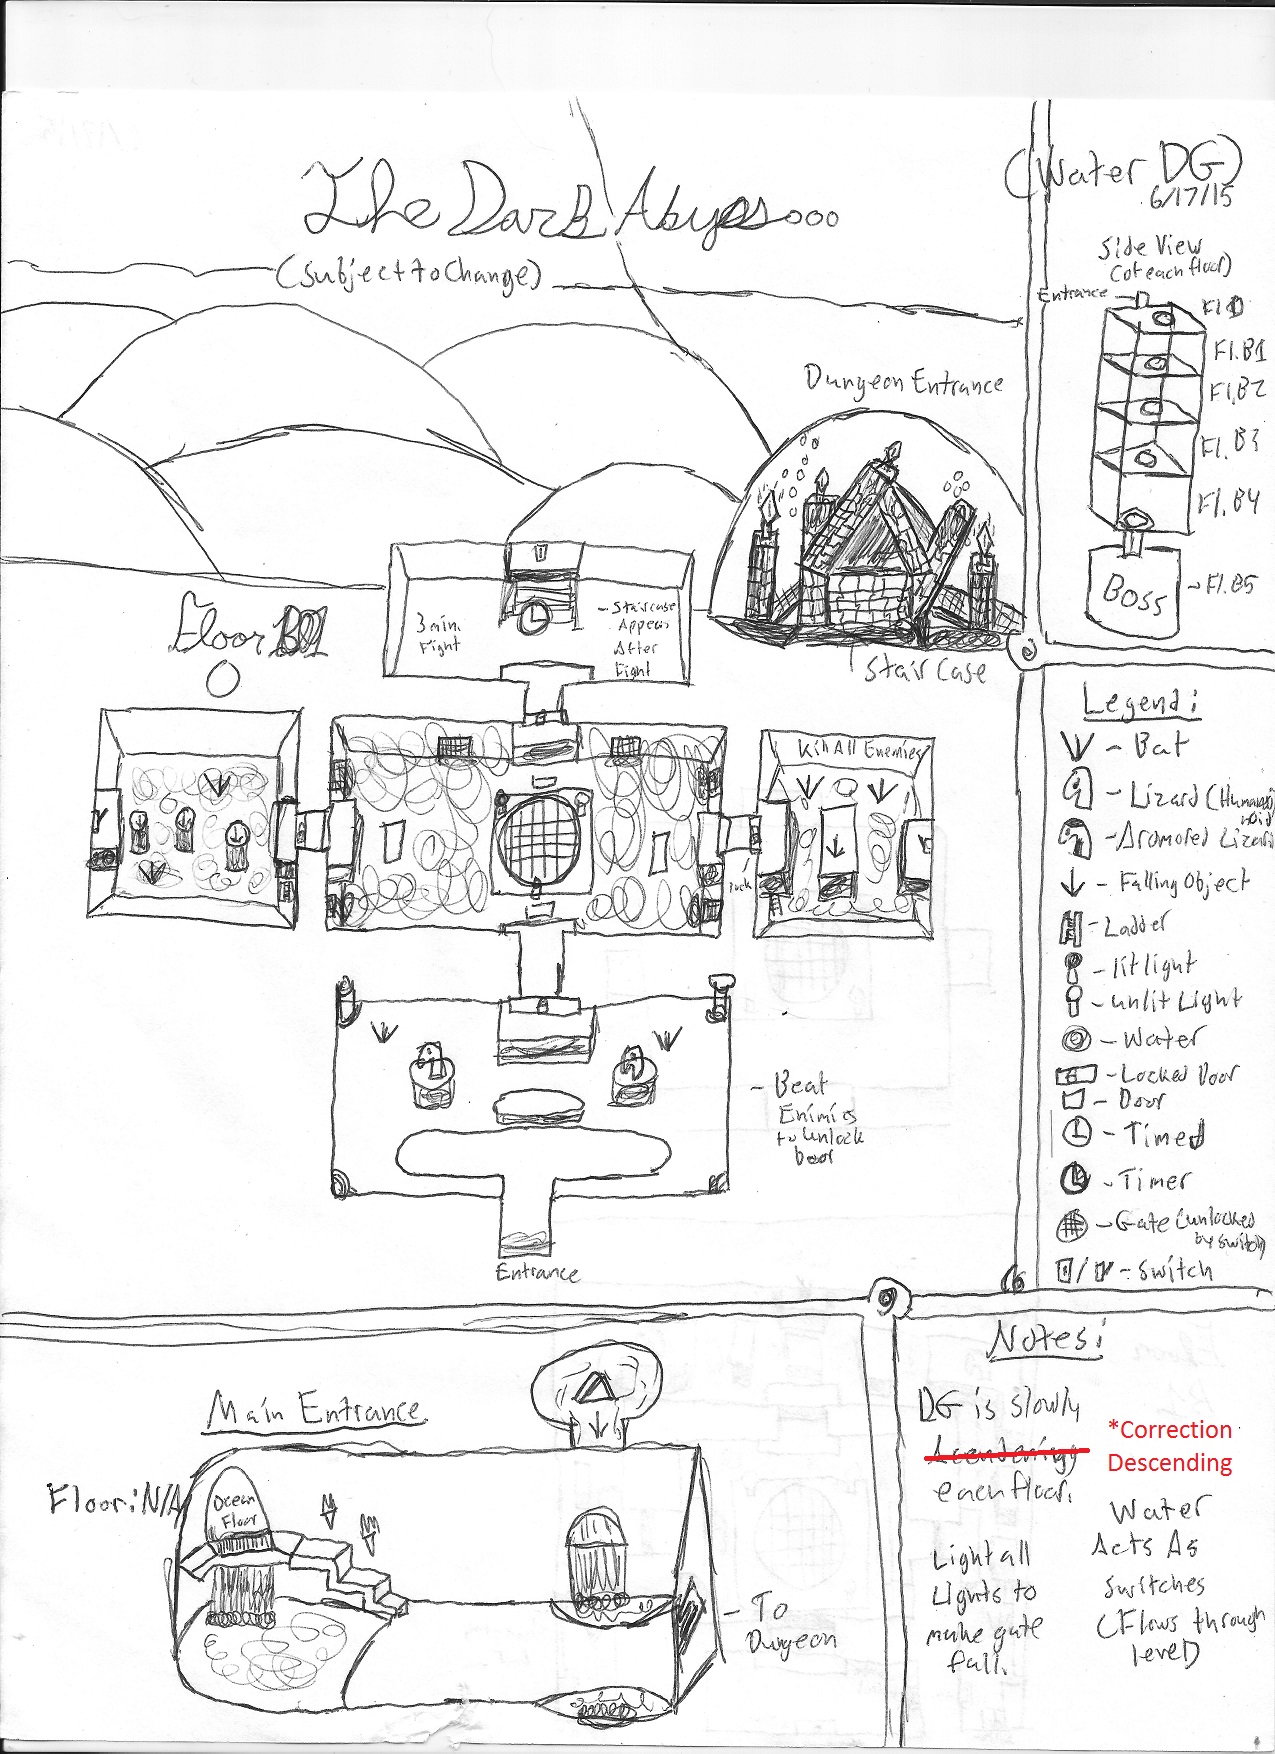 The Dark Abyss...
(Subject to Change)
(Water DG)
6/17/15
Side View
(of each floor)
Entrance
Fl.B1
Fl.B2
Fl.B3
Fl.B4
Boss
~Fl.B5
Dungeon Entrance
Stair Case
Floor B1
3 min.
Fight
- Staircase
Appears
After
Fight
Kill All Enemies
- Beat
Enimies
to unlock
Door
Entrance
Legend:
- Bat
- Lizard (Humanoid)
- Aromored Lizard
- Falling Object
- Ladder
- lit light
- unlit Light
- Water
- Locked Door
- Door
- Timed
- Timer
- Gate (unlocked
by switch)
- Switch
Main Entrance
Floor: N/A
Ocean
Floor
- To
Dungeon
Notes:
DG is slowly
Acendeningy
*Correction
Descending
each floor.
Light all
Lights to
make gate
fall.
Water
Acts As
switches
(Flows through
level)